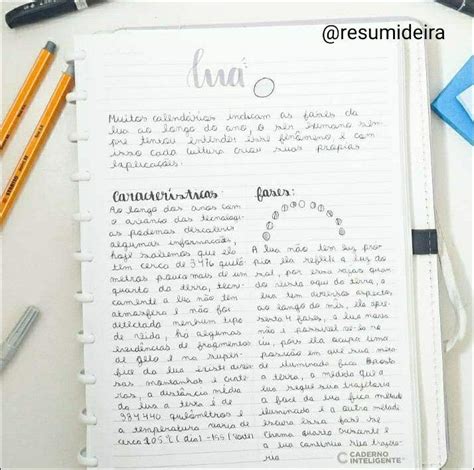 @resumideira
lua
Muitos calendários indicam as fases da
lua ao longo do ano, o ser humano sem-
pre tentou entender esse fenômeno e com
isso cada cultura criou suas próprias
explicações.
Características:
Ao longo dos anos com
o avanço das tecnologi-
as podemos descobrir
algumas informações,
hoje sabemos que ela
tem cerca de 3476 quilô-
metros pouco mais de um
quarto da terra,
camente a lua não tem
atmosfera e não foi
detectado nenhum tipo
de vida, há algumas
evidências de fragmentos
de gelo e na super-
fície da lua existe
sas montanhas e crate-
ras, a distância média
da lua a terra é de
384.440 quilômetros e
a temperatura varia de
cerca 105°C (dia) -155 (noite)
fases:
A lua não tem luz pró-
pria ela reflete a luz do
sol, por essa razão quan-
do vista aqui da terra, a
lua tem diversos aspectos
ao longo do mês, ela apre-
senta 4 fases, a lua nova
não é possível vê-la no
céu, pois ela ocupa uma
posição em que sua
iluminada fica
a terra, a medida que a
lua segue sua trajetória
a face da lua fica metade
iluminada e a outra metade
escura essa fase se
chama quarto
a lua continua
ria
CADERNO
INTELIGENTE